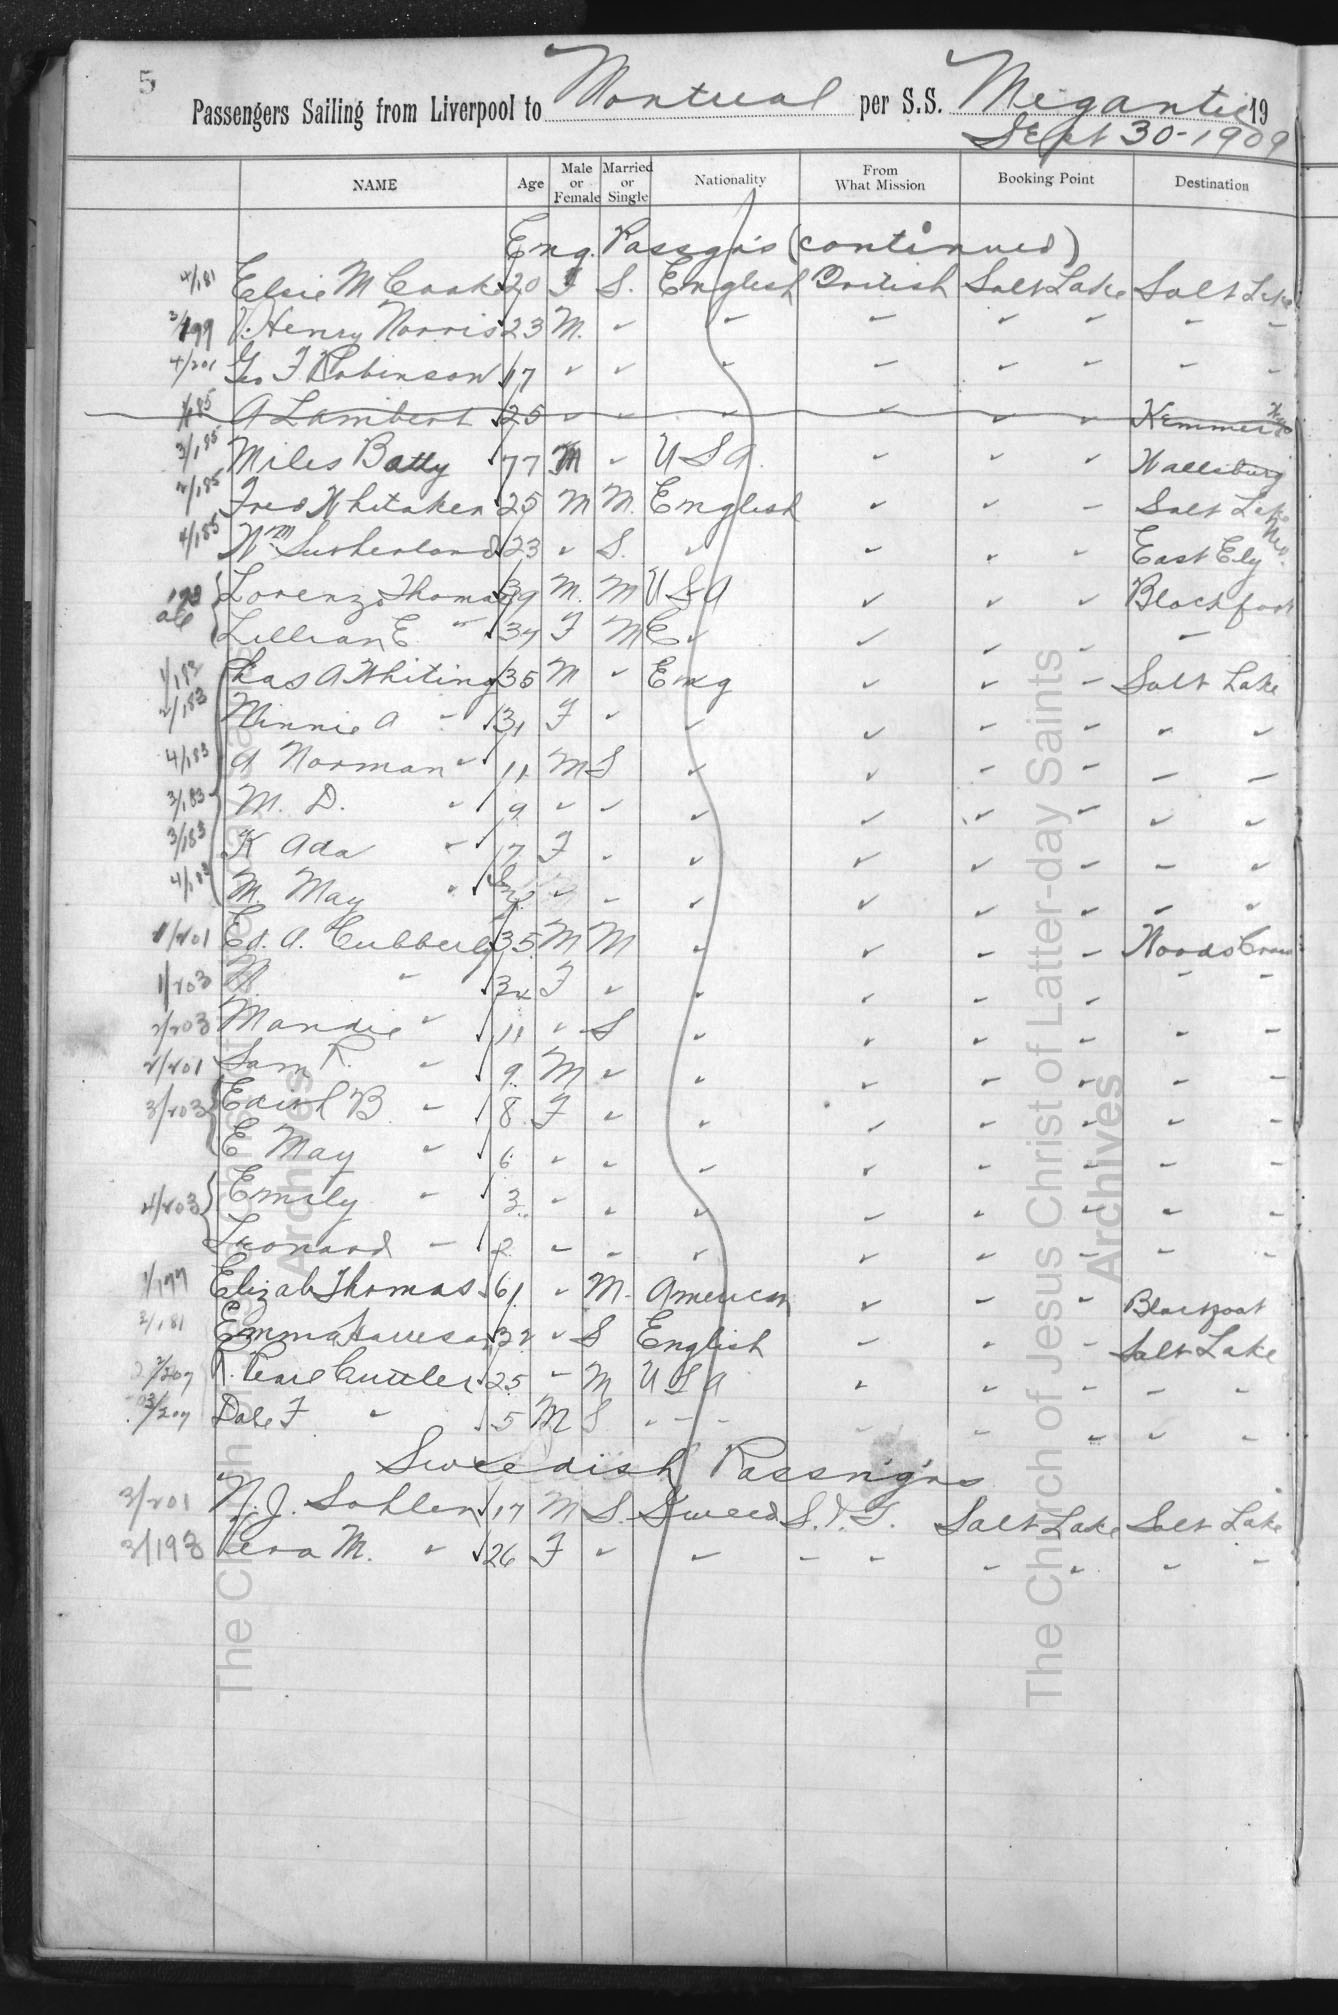 5
Passengers Sailing from Liverpool to Montreal per S.S. Megantic 19
Sept 30-1909
NAME Age Male or Female Married or Single Nationality From What Mission Booking Point Destination
Eng. Passgrs (continued)
4/181 Elsie M Cook 20 F S. English British Salt Lake Salt Lake
3/199 V. Henry Norris 23 M. " " " " " " "
4/201 Geo F Robinson 17 " " " " " " " "
1/185 A Lambert 25 " " " " " " Kemmer Wyo
3/185 Miles Batty 77 M " USA " " " Wallsburg
2/185 Fred Whitaker 25 M M. English " " " Salt Lake
4/185 Wm Sutherland 23 " S. " " " " East Ely Nev.
193 all Lorenzo Thomas 39 M. M USA " " " Blackfoot
Lillian E. " 34 F M E " " " " "
1/183 Chas A Whiting 35 M " Eng " " " Salt Lake
2/183 Minnie A " 31 F " " " " " " "
4/183 A Norman " 11 M S " " " " " "
3/183 M. D. " 9 " " " " " " " "
3/183 K Ada " 7 F " " " " " " "
4/183 M. May " Inf. " " " " " " " "
1/201 Ed. A. Cubberly 35 M M " " " " Woods Cross
1/203 M " 34 F " " " " " " "
2/203 Mandie " 11 " S " " " " " "
2/201 Sam R. " 9 M " " " " " " "
3/203 Edith B " 8 F " " " " " " "
E May " 6 " " " " " " " "
4/203 Emily " 3 " " " " " " " "
Leonard " 2 " " " " " " " "
1/197 Elizab Thomas 61 " M. American " " " Blackfoot
2/181 Emma 32 " S English " " " Salt Lake
2/207 R. Pearl Cuttler 25 " M USA " " " " "
3/207 Dale F " 5 M S " " " " " " "
Swedish Passngrs
3/201 N. J. Sohlen 17 M S. Sweed. Salt Lake Salt Lake
3/193 Vera M. " 26 F " " " " " " " "
The Church of Jesus Christ of Latter-day Saints
Archives
The Church of Jesus Christ of Latter-day Saints
Archives